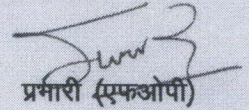 प्रभारी (एफओपी)